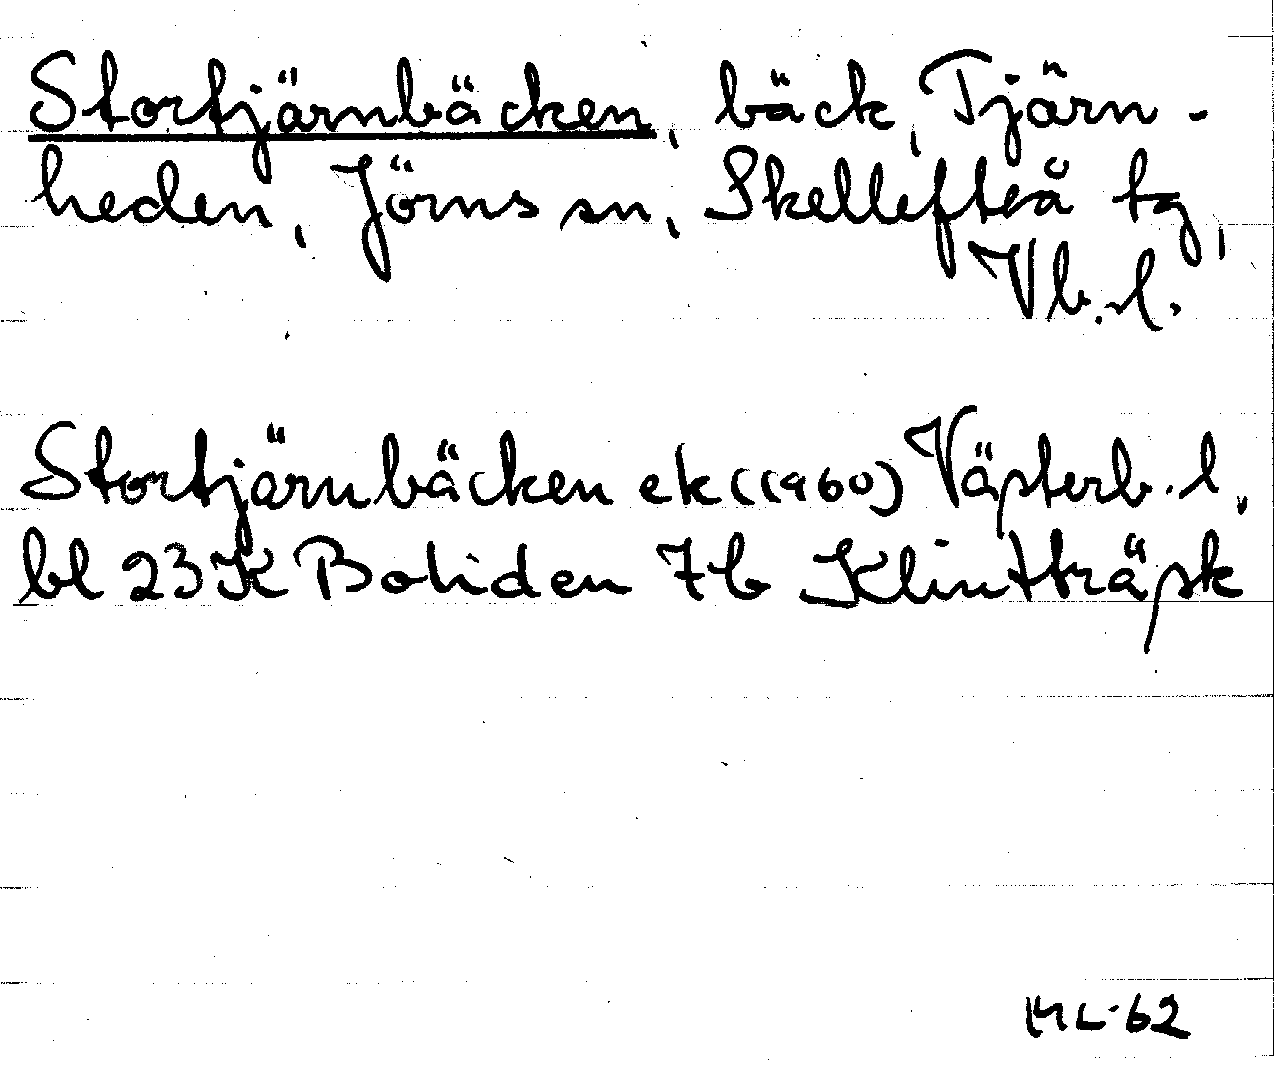 Stortjärnbäcken, bäck, Tjärn-
heden, Jörns sn, Skellefteå tg,
Vb.l.
Stortjärnbäcken ek (1960) Västerb.l.
bl 23K Boliden 7b Klintträsk
ML-62